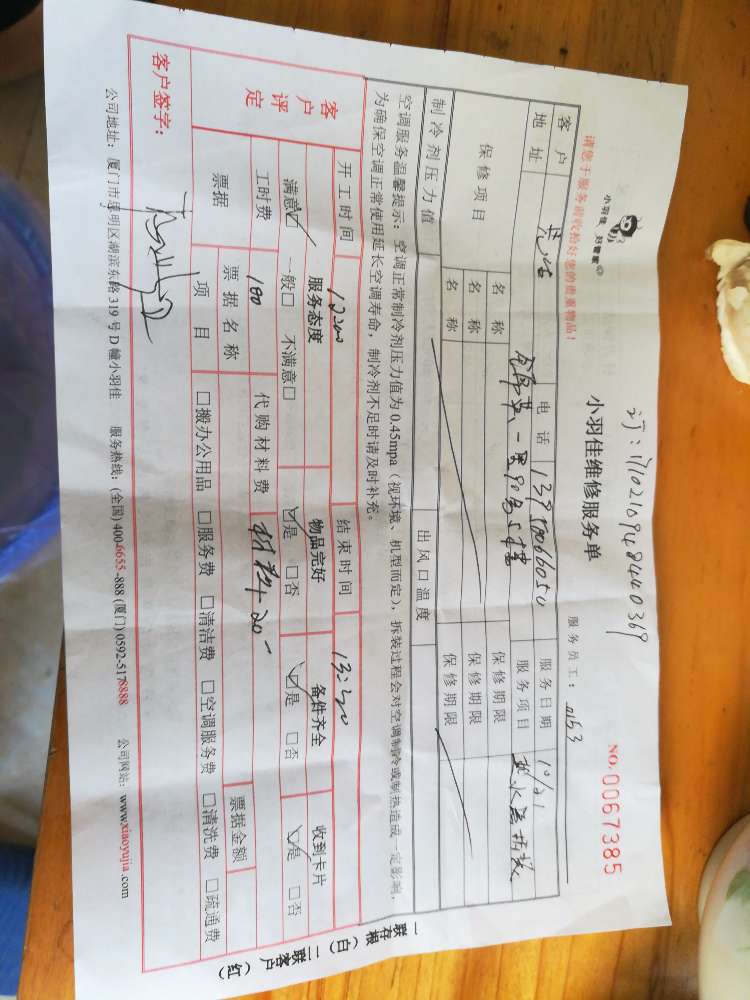 请您于服务前收拾好您的贵重物品!
小羽佳 好管家
小羽佳维修服务单
NO. 0067385
服务员工:
客户 电话 服务日期 10/21
地址 服务项目
保修项目 名称 保修期限
名称 保修期限
名称 保修期限
制冷剂压力值 出风口温度
空调服务温馨提示:空调正常制冷剂压力值为0.45mpa(视环境、机型而定),拆装过程会对空调制冷或制热造成一定影响,
为确保空调正常使用延长空调寿命,制冷剂不足时请及时补充。
开工时间 结束时间
客户评定 服务态度 物品完好 备件齐全 收到卡片
满意☑ 一般□ 不满意□ ☑是 □否 ☑是 □否 ☑是 □否
工时费 180 代购材料费 材料 20
票据 票据名称 票据金额
项目 □搬办公用品 □服务费 □清洁费 □空调服务费 □清洗费 □疏通费
客户签字:
公司地址:厦门市思明区湖滨东路319号D幢小羽佳 服务热线:(全国)400-6655-888(厦门)0592-5178888 公司网站:www.xiaoyujia.com
一联存根(白)二联客户(红)